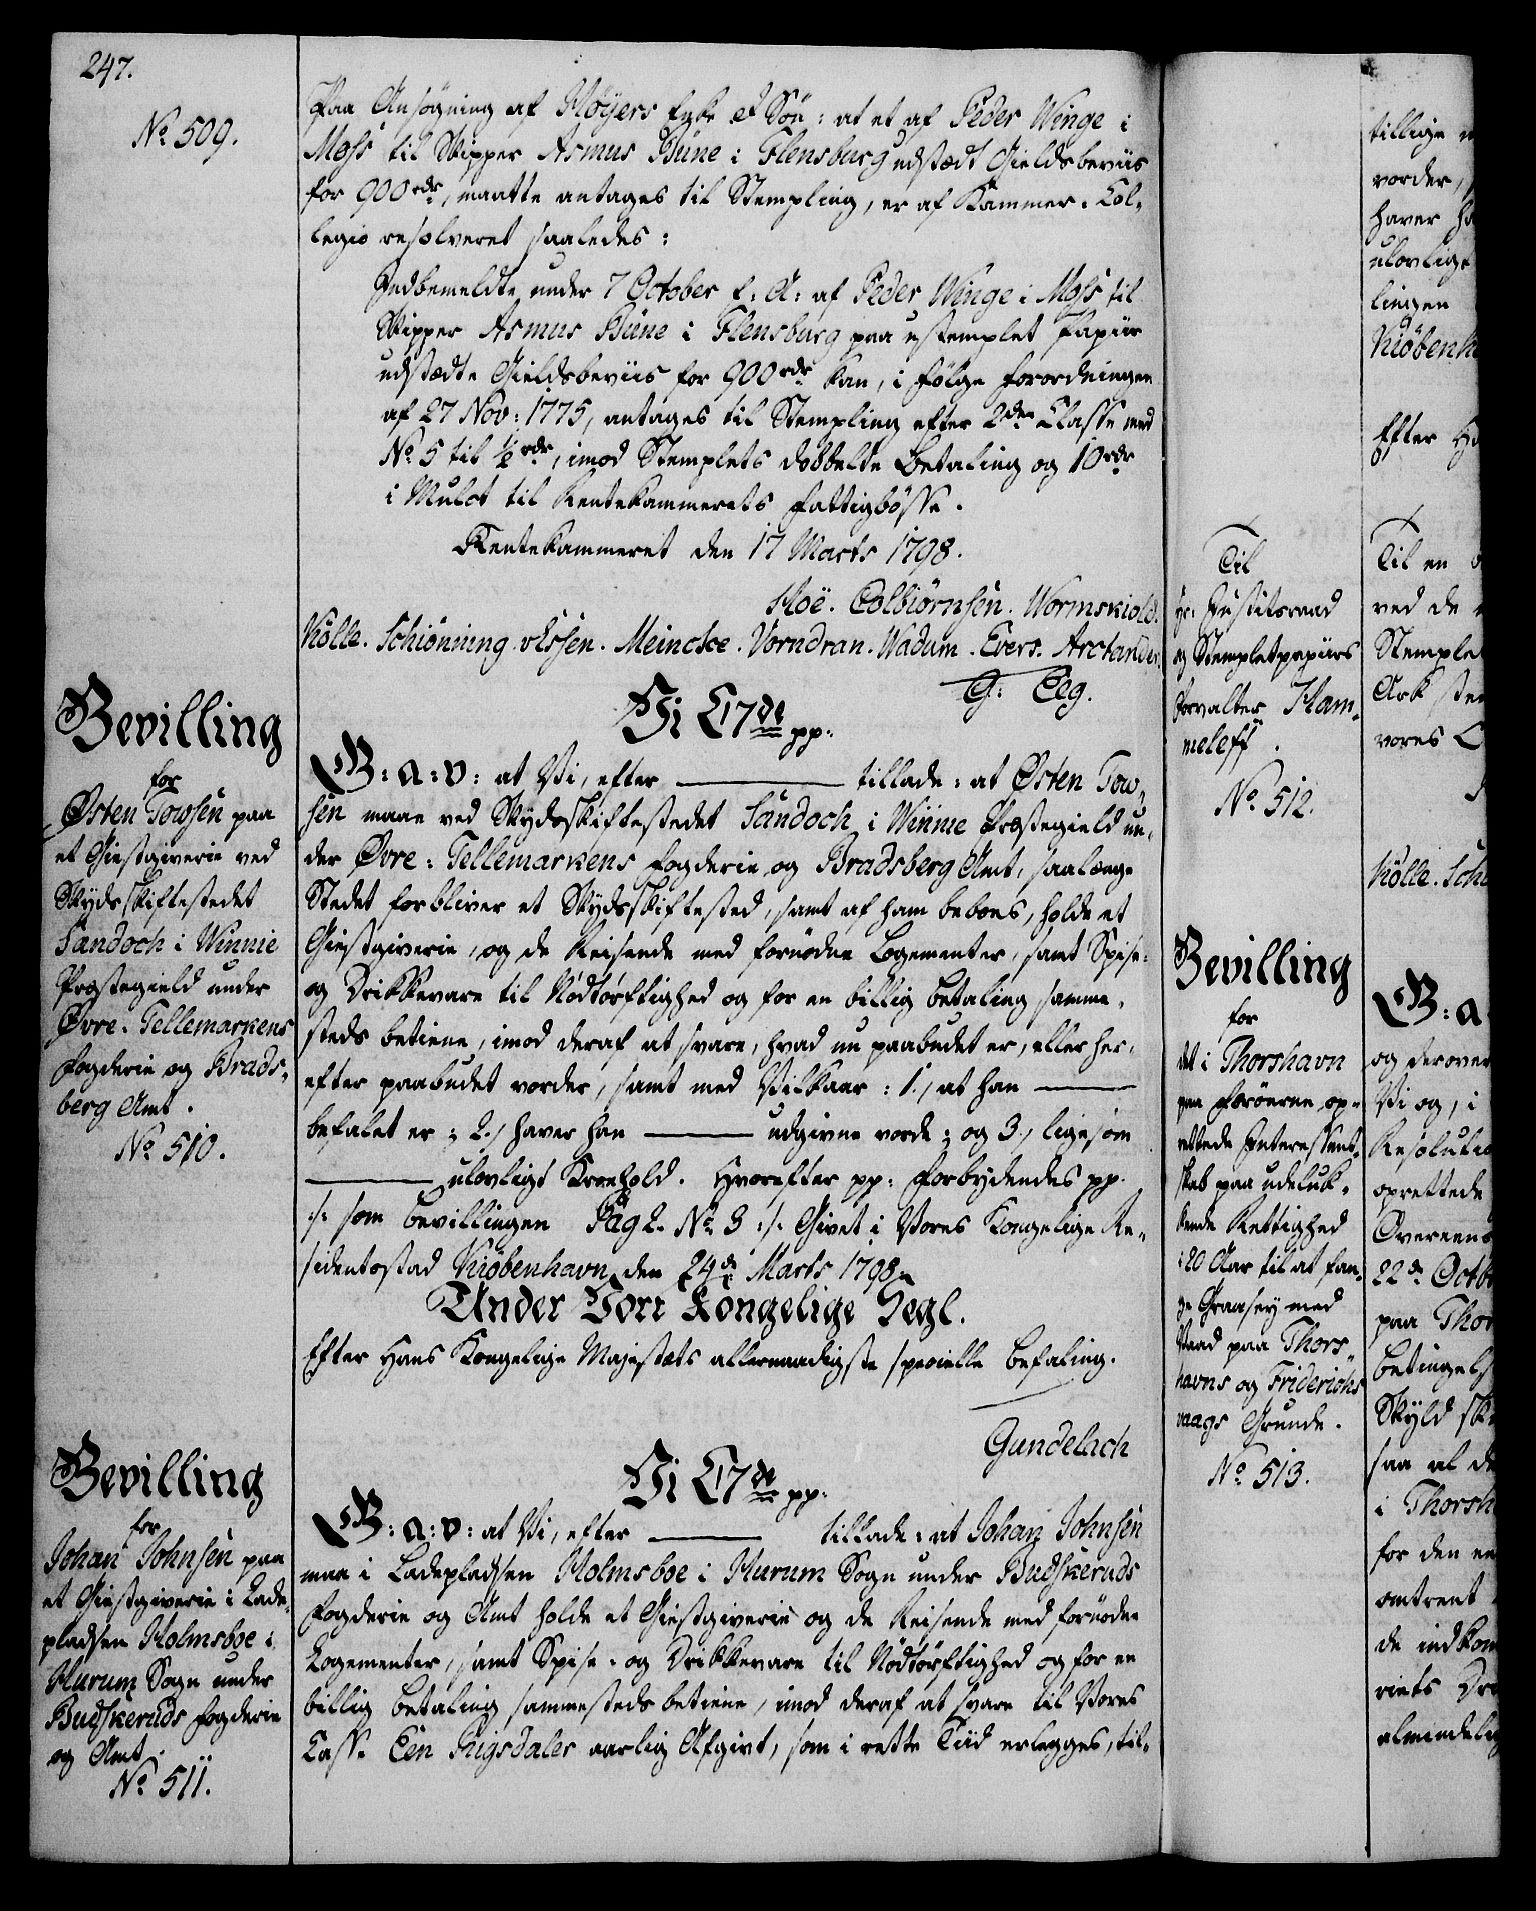 247.
No 509.
Paa Ansøgning af Høyers Enke et Søn: at et af Peder Winge i
Moss til Skipper Asmus Büne i Flensburg udstædt Gieldsbeviis
for 900 rdr, maatte antages til Stempling, er af Kammer-Col-
legio resolveret saaledes:
Indbemeldte under 7 October f: A: af Peder Winge i Moss til
Skipper Asmus Büne i Flensburg paa ustemplet Papiir
udstædte Gieldsbeviis for 900 rdr kan, i følge Forordningen
af 27 Nov: 1775, antages til Stempling efter 2den Classe med
No 5 til ½ rdr, imod Stemplets dobbelte Betaling og 10 rdr
i Mulct til Rentekammerets Fattigbøsse.
Rentekammeret den 17 Marts 1798.
Hoë. Colbiørnsen. Wormskiold.
Kölle. Schiønning. v Essen. Meincke. Vorndran. Wadum. Evers. Arctander.
G: Ceg.
Bevilling
for
Østen Towsen paa
et Giestgiverie ved
Skydsskiftestedet
Sandoch i Winnie
Præstegield under
Øvre-Tellemarkens
Fogderie og Brads-
berg Amt.
No 510.
Vi C 7de pp:
G: a: v: at Vi, efter ——— tillade: at Østen Tow-
sen maae ved Skydsskiftestedet Sandoch i Winnie Præstegield un-
der Øvre-Tellemarkens Fogderie og Bradsberg Amt, saalænge
Stedet forbliver et Skydsskiftested, samt af ham beboes, holde et
Giestgiverie, og de Reisende med fornødne Logementer, samt Spise-
og Drikkevare til Nødtørftighed og for en billig Betaling samme-
steds betiene, imod deraf at svare, hvad nu paabudet er, eller her-
efter paabudet vorder, samt med Vilkaar: 1., at han ———
befalet er; 2., haver han ——— udgivne vorde; og 3., ligesom
——— ulovligt Kroehold. Hvorefter pp: Forbydendes pp.
:/: som Bevillingen Pag 2. No 3 :/: Givet i Vores Kongelige Re-
sidentsstad Kiøbenhavn den 24de Marts 1798.
Under Vort Kongelige Segl.
Efter Hans Kongelige Majestæts allernaadigste specielle Befaling.
Gundelach
Bevilling
for
Johan Johnsen paa
et Giestgiverie i Lade-
pladsen Holmsboe i
Hurum Sogn under
Budskeruds Fogderie
og Amt.
No 511.
Vi C 7de pp:
G: a: v: at Vi, efter ——— tillade: at Johan Johnsen
maa i Ladepladsen Holmsboe i Hurum Sogn under Budskeruds
Fogderie og Amt holde et Giestgiverie og de Reisende med fornødne
Logementer, samt Spise- og Drikkevare til Nødtørftighed og for en
billig Betaling sammesteds betiene, imod deraf at svare til Vores
Casse Een Rigsdaler aarlig Afgivt, som i rette Tiid erlegges, til-
Til
Hr: Justitsraad
og Stempletpapiirs
Forvalter Ham-
meleff.
No 512.
Bevilling
for
det i Thorshavn
paa Færøerne op-
rettede Interessent-
skab paa udeluk-
kende Rettighed
i 20 Aar til at fan-
ge Graasey med
Vaad paa Thors-
havns og Friderichs
vaags Grunde.
No 513.
tillige
vorder,
haver
ulovlig
lingen
Kiøbenh
Efter Ha
Til en
ved de
Stemple
Ark
vores
Kölle. Sch
G: a
og derover
Vi og, i
Resolutio
oprettede
Overeens
22de Octb
paa Thor
betingels
Skyld
saa al de
i Thorsh
for den
omtrent
de indkom
riets
almindelig